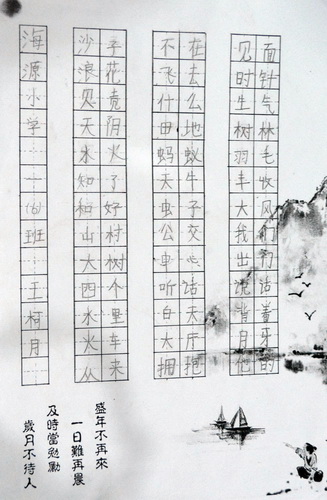 海源小学 一(6)班 王柯月
沙子
浪花
贝壳
天阴
水火
知了
和好
山村
大树
四个
水里
火车
从来
不在
飞去
什么
田地
蚂蚁
天牛
虫子
公交
心
听话
白天
大斤
拥抱
见面
时针
生气
树林
羽毛
丰收
大风
我们
出
话
月牙
他的
盛年不再來
一日難再晨
及時當勉勵
歲月不待人